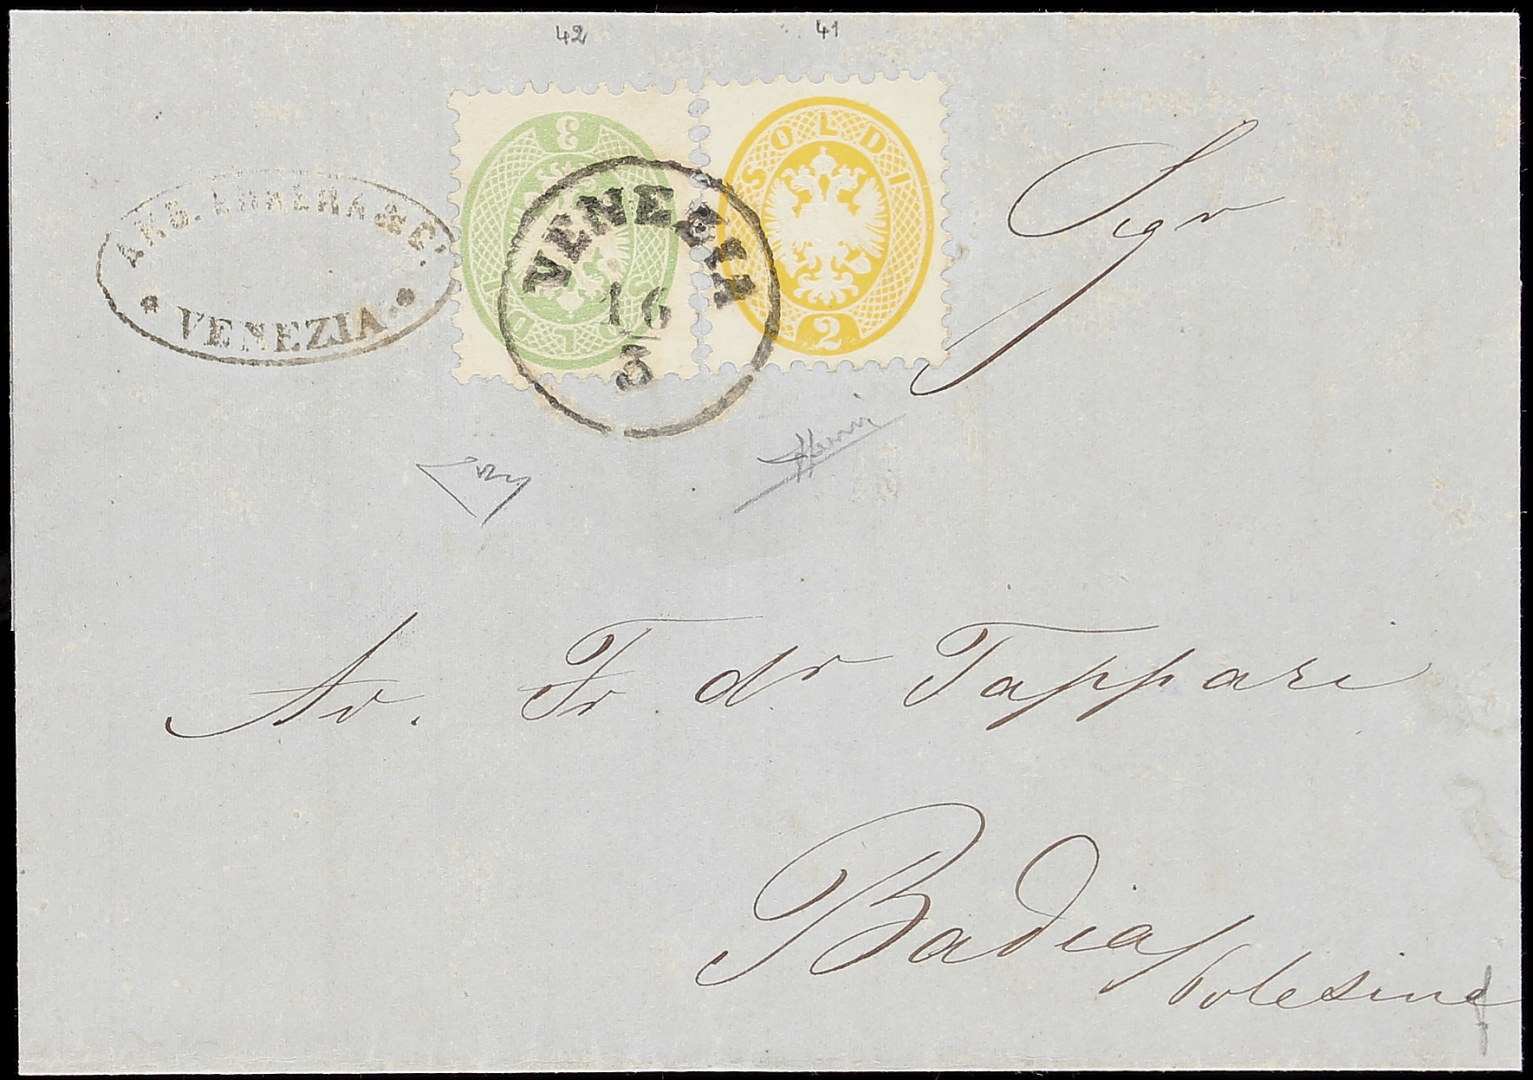 42 41
3
SOLDI
2
VENEZIA
VENEZIA
16
3
Sigr
Av. Fr dr Tappari
Badia / Polesine